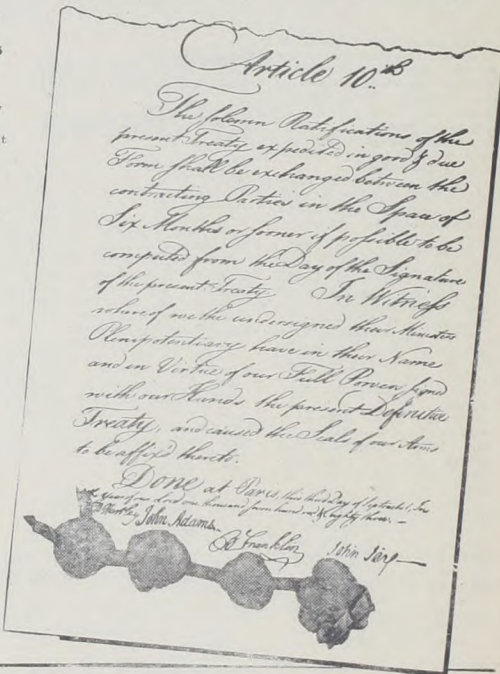 Article 10.th
The solemn Ratifications of the
present Treaty expedited in good & due
Form shall be exchanged between the
contracting Parties in the Space of
Six Months or sooner if possible to be
computed from the Day of the Signature
of the present Treaty. In Witness
whereof we the undersigned their Ministers
Plenipotentiary have in their Name
and in Virtue of our Full Powers signed
with our Hands the present Definitive
Treaty, and caused the Seals of our Arms
to be affix'd thereto.
Done at Paris, this third Day of September, In
the year of our Lord one thousand seven hundred & eighty three.—
D Hartley John Adams. B Franklin John Jay—
t